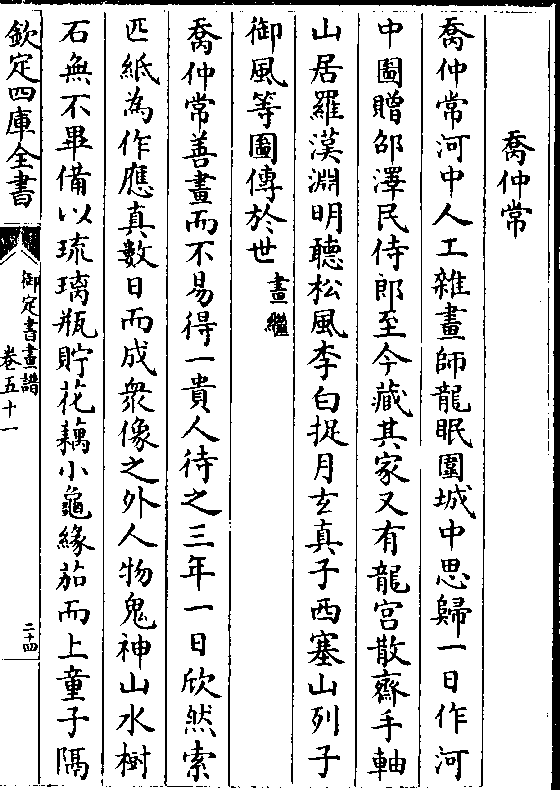 喬仲常
喬仲常河中人工雜畫師龍眠圍城中思歸一日作河
中圖贈邵澤民侍郎至今藏其家又有龍宫散齋手軸
山居羅漢淵明聽松風李白捉月玄真子西塞山列子
御風等圖傳於世畫繼
喬仲常善畫而不易得一貴人待之三年一日欣然索
匹紙為作應真數日而成衆像之外人物鬼神山水樹
石無不畢備以琉璃瓶貯花藕小龜緣茄而上童子隔
欽定四庫全書
御定書畫譜
卷五十一
二十四